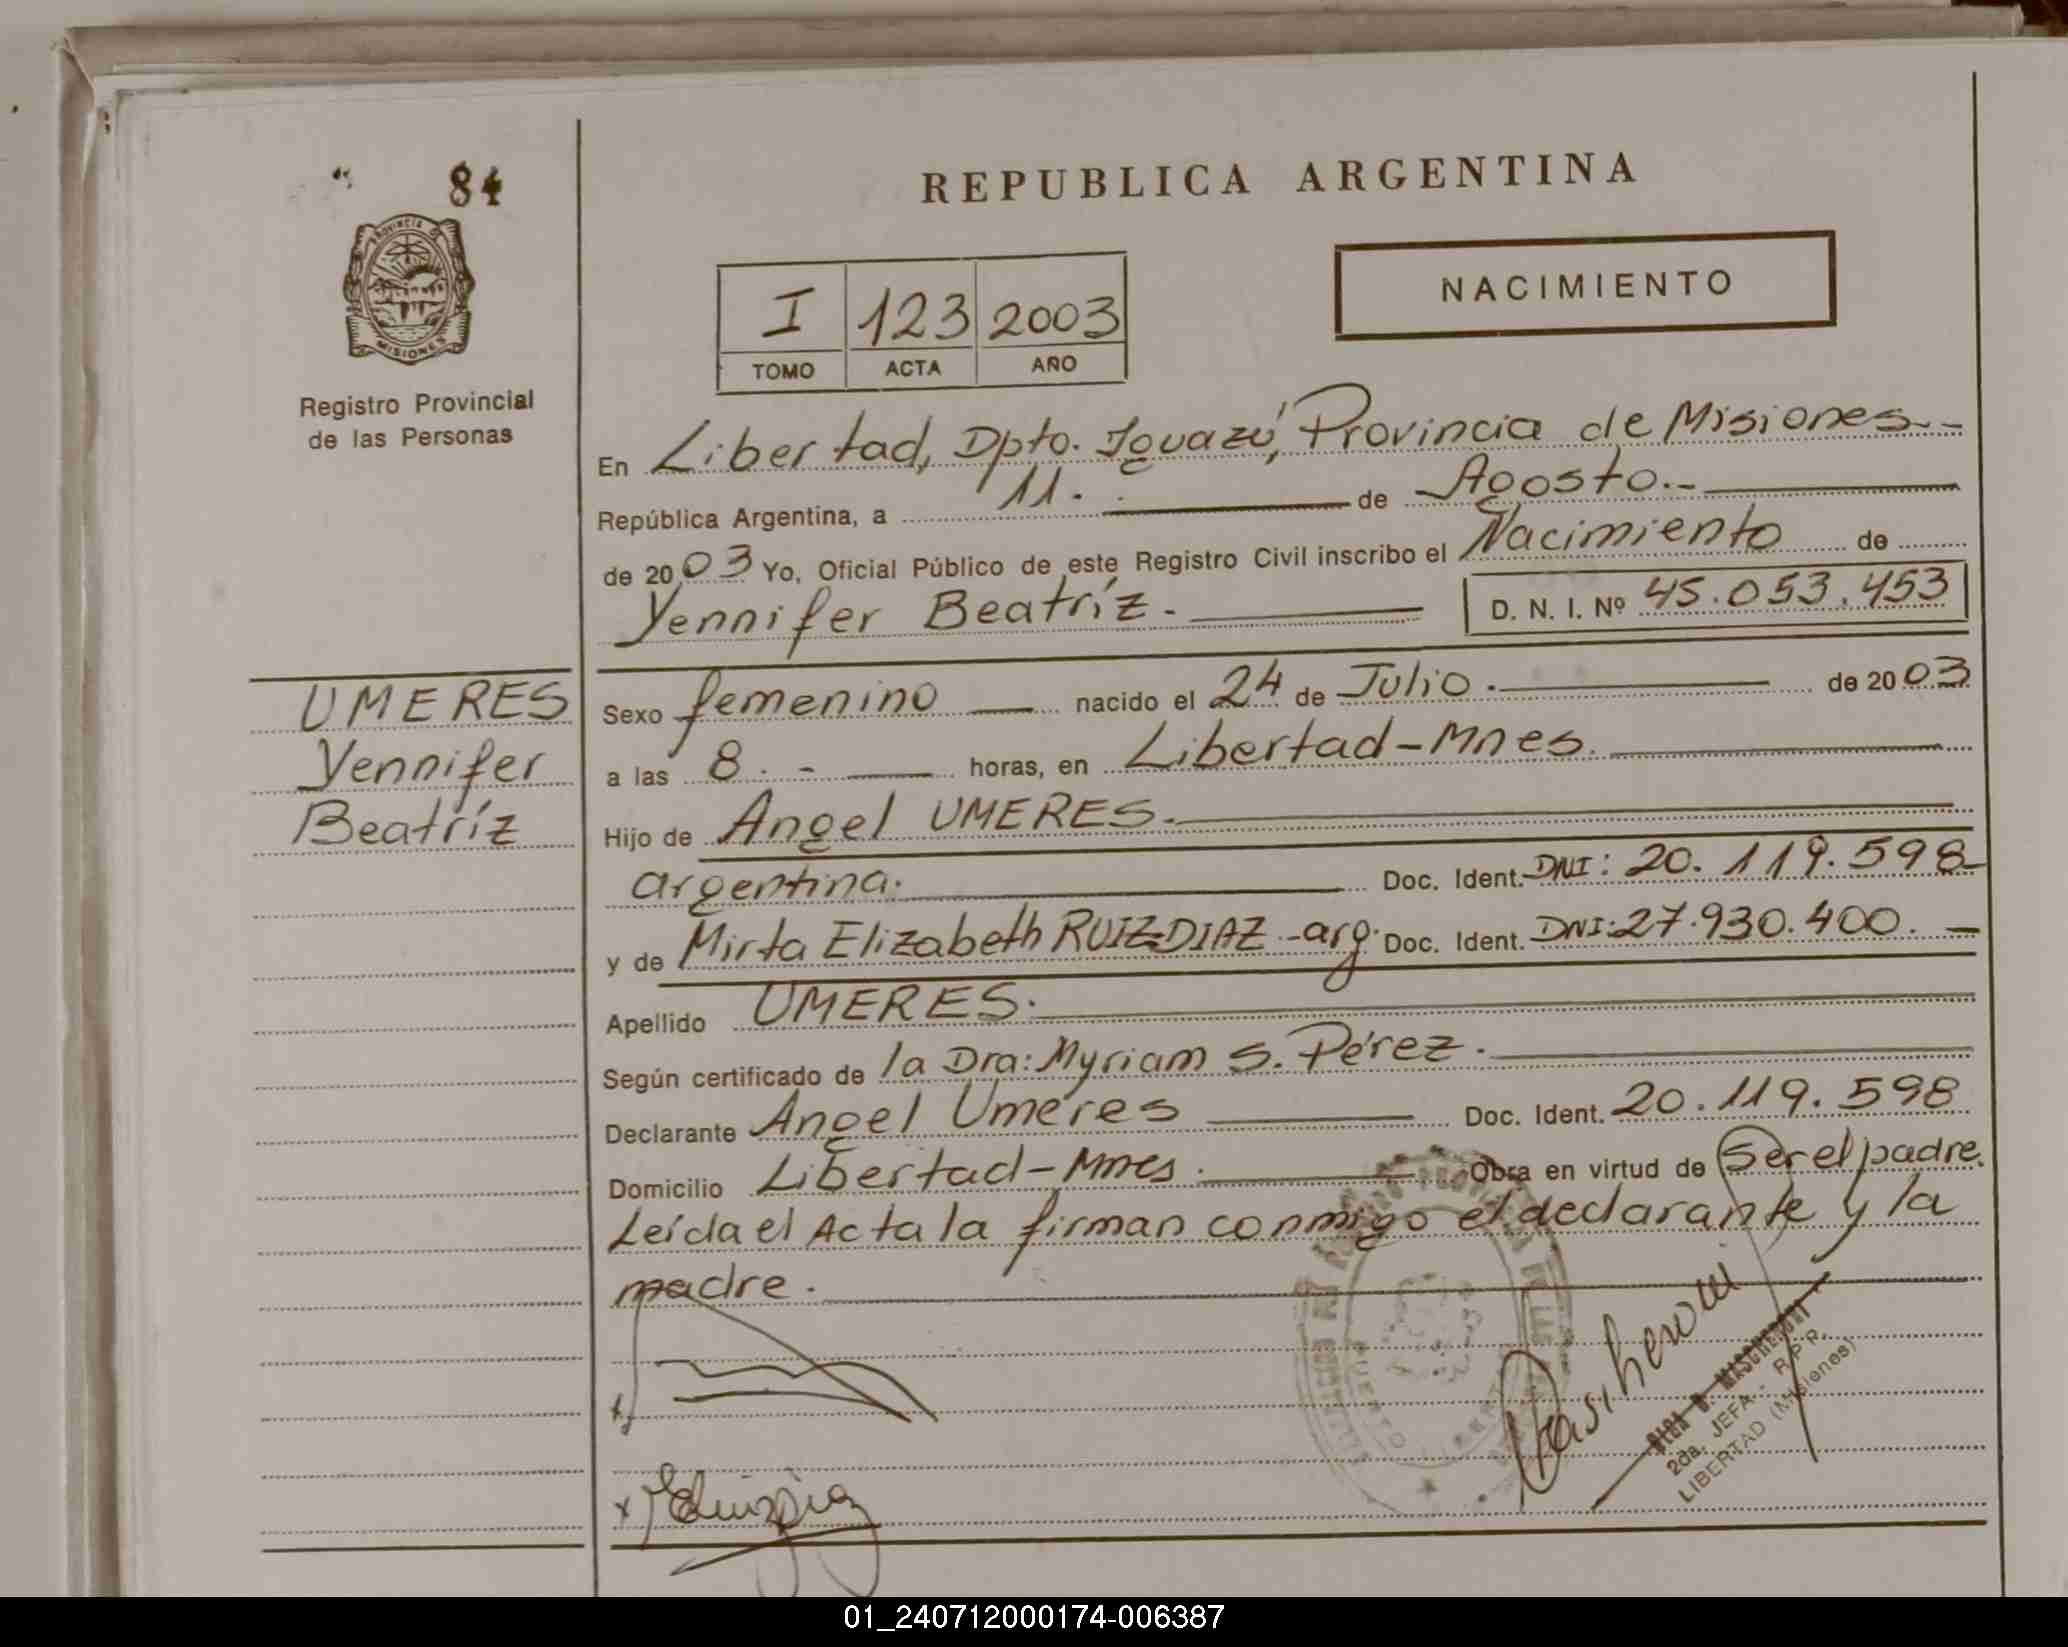 84
PROVINCIA DE
MISIONES
Registro Provincial
de las Personas
REPUBLICA ARGENTINA
I 123 2003
TOMO ACTA AÑO
NACIMIENTO
En Libertad, Dpto. Iguazú, Provincia de Misiones.-
República Argentina, a 11. de Agosto.-
de 2003 Yo, Oficial Público de este Registro Civil inscribo el Nacimiento de
Yennifer Beatríz.
D. N. I. Nº 45.053.453
UMERES
Yennifer
Beatríz
Sexo femenino nacido el 24 de Julio. de 2003
a las 8. - horas, en Libertad-Mnes.
Hijo de Angel UMERES.
argentina. Doc. Ident. DNI: 20.119.598-
y de Mirta Elizabeth RUIZ DIAZ -arg. Doc. Ident. DNI: 27.930.400. -
Apellido UMERES.
Según certificado de la Dra: Myriam S. Pérez.
Declarante Angel Umeres Doc. Ident. 20.119.598
Domicilio Libertad-Mnes. Obra en virtud de Ser el padre.
Leída el Acta la firman conmigo el declarante y la
madre.
2da. JEFA - R.P.P.
LIBERTAD (Misiones)
01_240712000174-006387